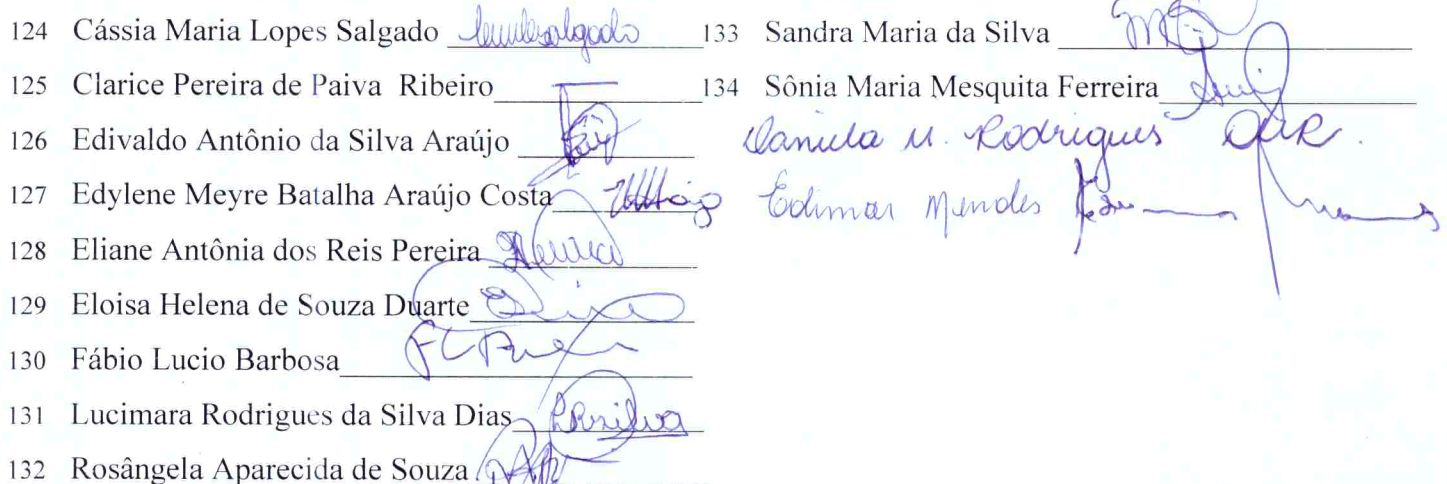 124 Cássia Maria Lopes Salgado
125 Clarice Pereira de Paiva Ribeiro
126 Edivaldo Antônio da Silva Araújo
127 Edylene Meyre Batalha Araújo Costa
128 Eliane Antônia dos Reis Pereira
129 Eloisa Helena de Souza Duarte
130 Fábio Lucio Barbosa
131 Lucimara Rodrigues da Silva Dias LRSilva
132 Rosângela Aparecida de Souza
133 Sandra Maria da Silva
134 Sônia Maria Mesquita Ferreira
Daniela M. Rodrigues DMR.
Edimar Mendes